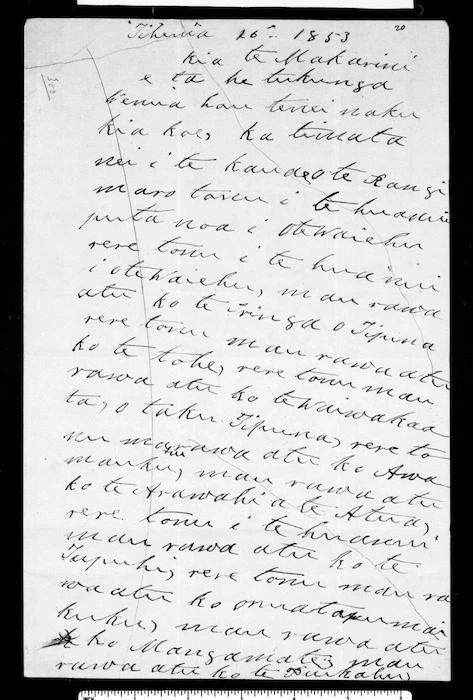 20
Tihema 26 = 1853
300
kia te Makarini
e ta he tukunga
wenua hou tenei naku
kia koe, ka timata
nei i te o te Rangi
maro tonu i te huanui
puta noa i OteWaiehu
rere tonu i te huanui
i oteWaiehu, mau rawa
atu ko te iringa o Tipuna
rere tonu mau rawa atu
ko te tohe, rere tonu mau
rawa atu ko teWaiwakaa
ta, o taku Tipuna, rere to
nu mau rawa atu ko Awa
manku, mau rawa atu
ko te Arawahi a te Atua,
rere tonu i te huanui
mau rawa atu ko te
Tupuhi, rere tonu mau ra
wa atu ko mai
kuku, mau rawa atu
ko Mangamate, mau
rawa atu ko te